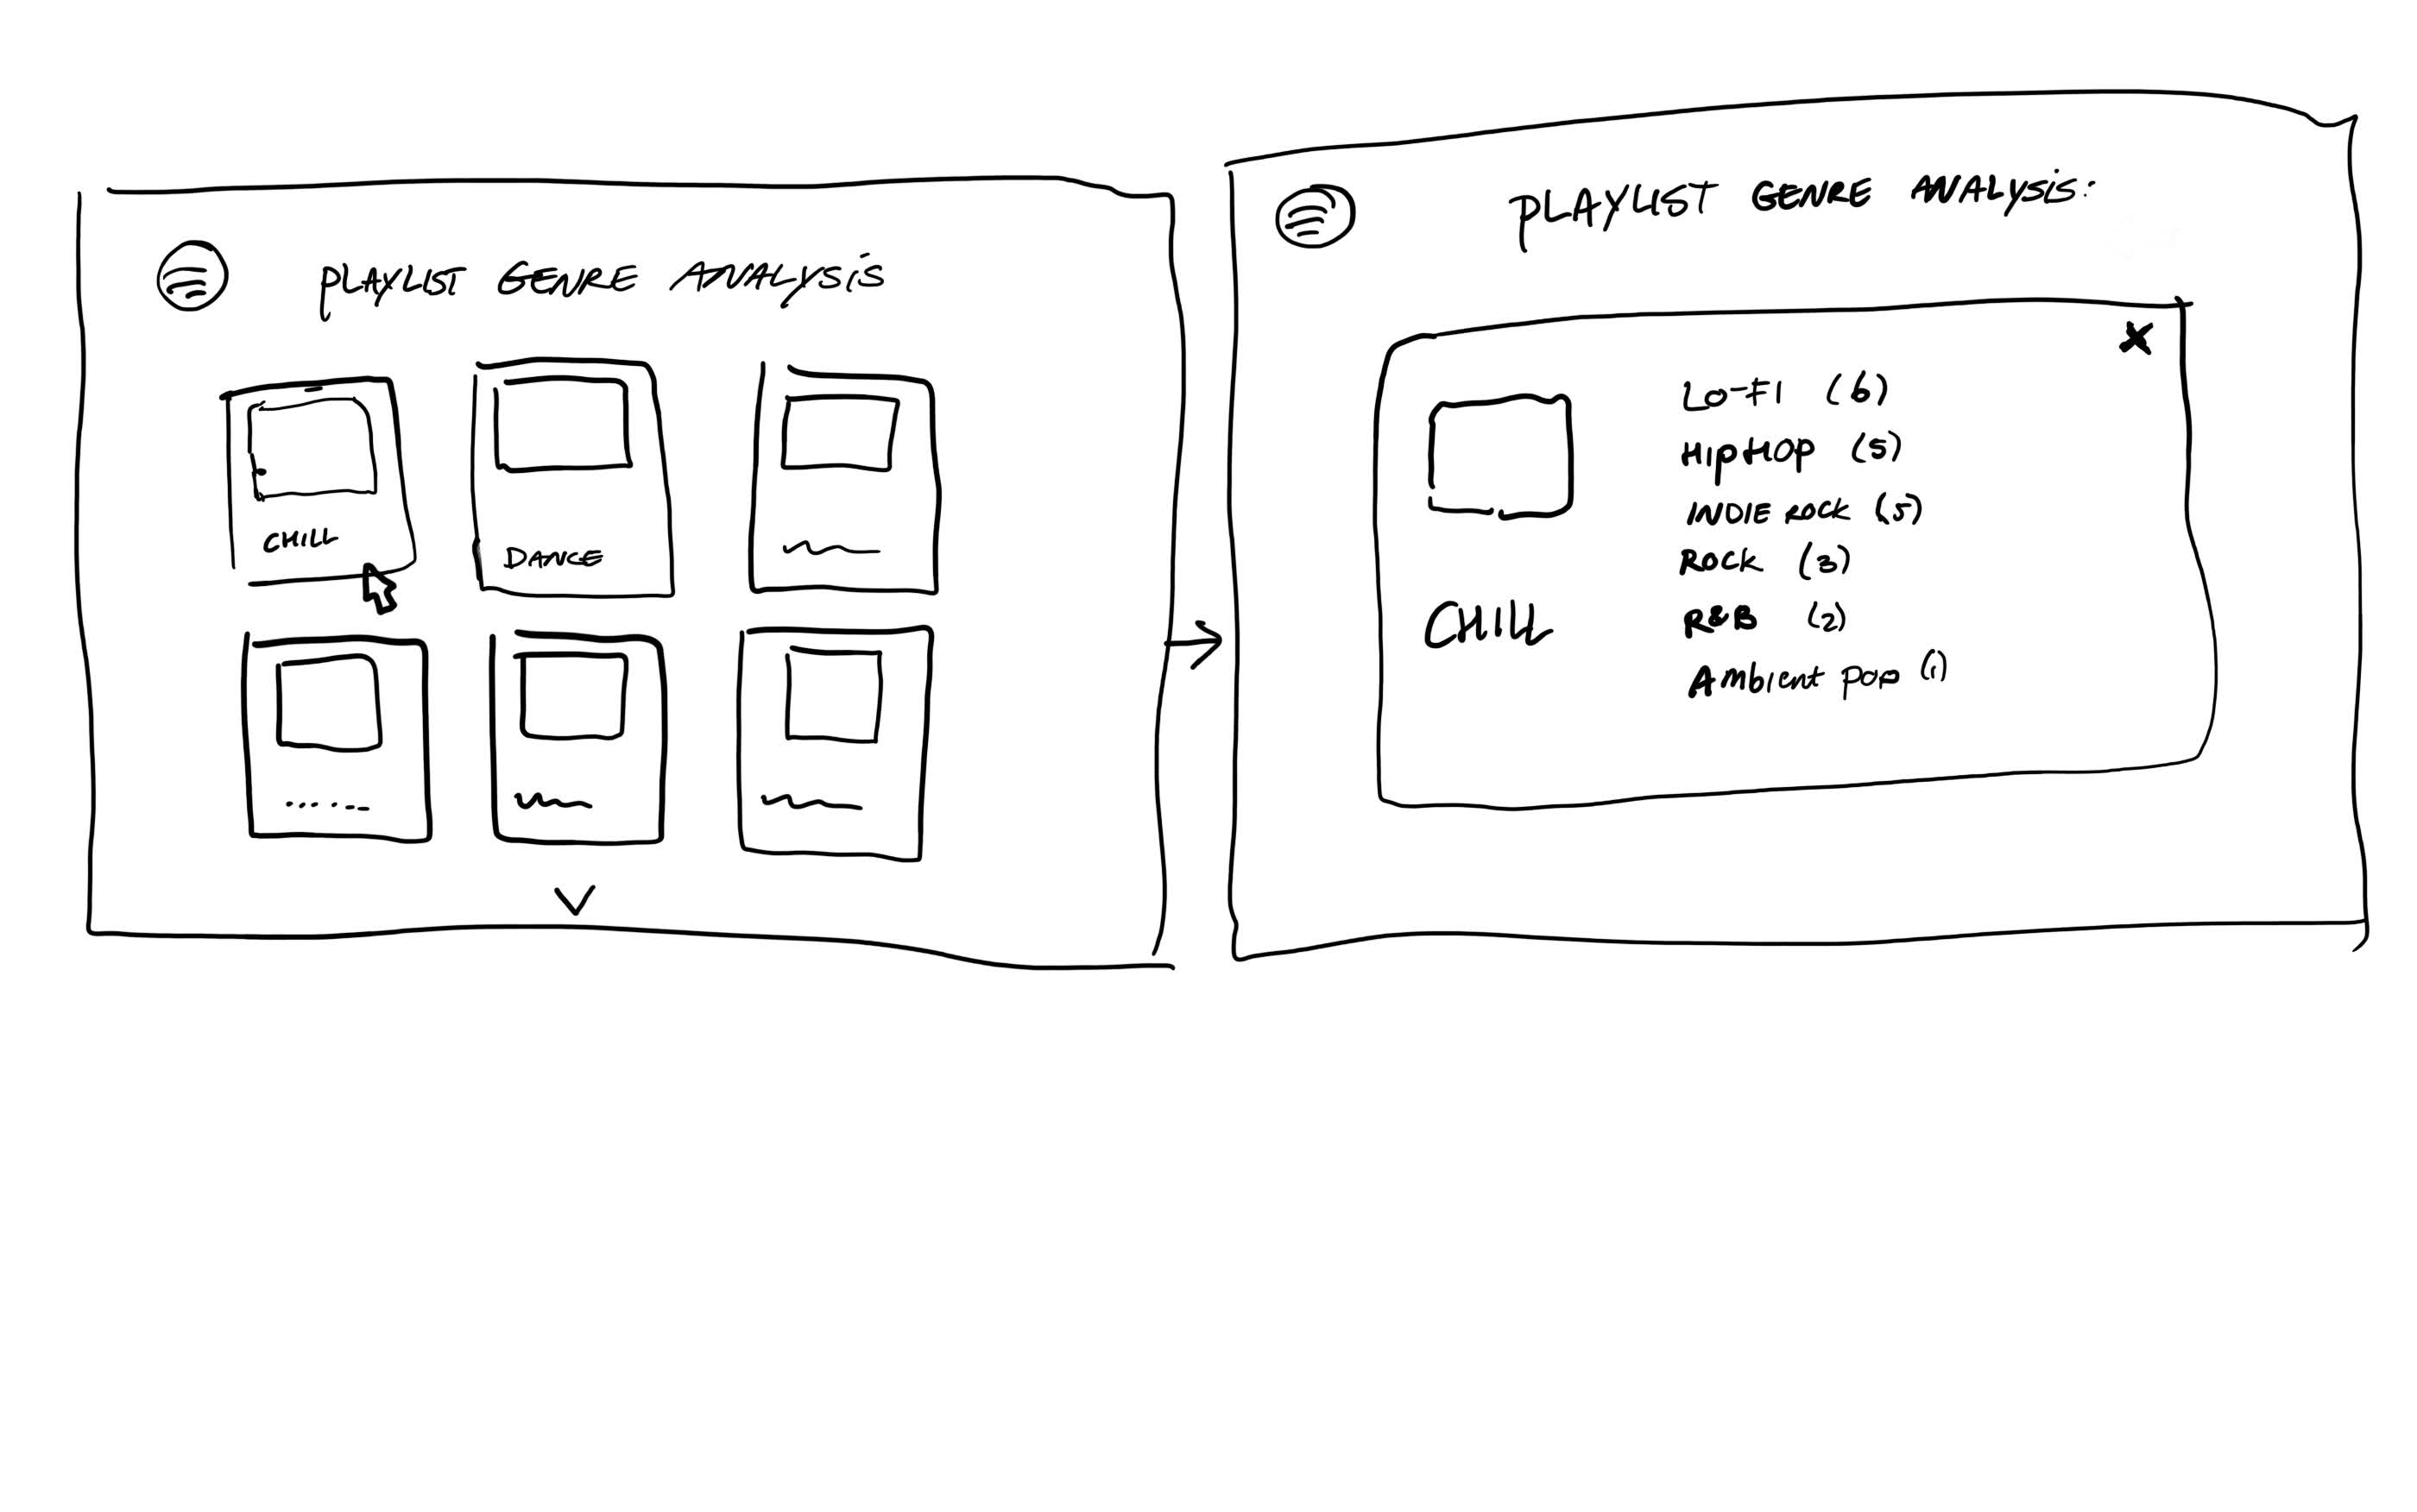 PLAYLIST GENRE ANALYSIS
CHILL
DANCE
PLAYLIST GENRE ANALYSIS:
X
LO-FI (6)
HIPHOP (5)
INDIE ROCK (5)
ROCK (3)
R&B (2)
Ambient pop (1)
CHILL